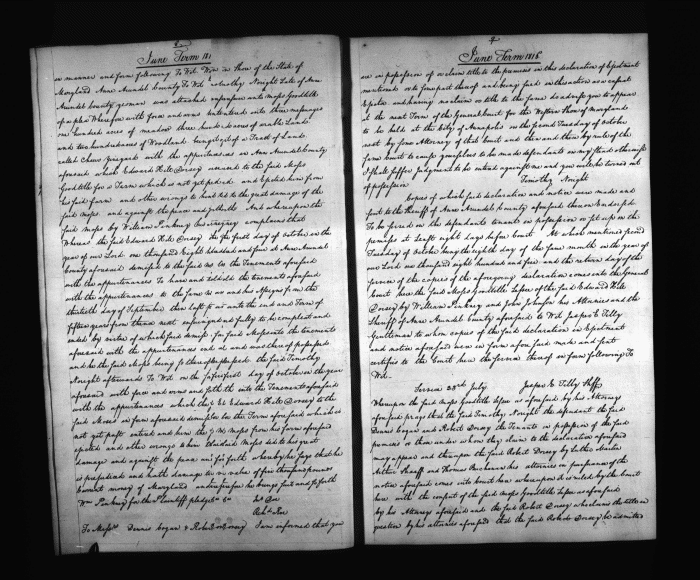 June Term 181
in manner and form following To Wit. in Thow of the State of
Maryland Anne Arundel County To Wit Timothy Noright Late of Ann
Arundel County yeoman was attached unto Moses Goodtitle
of a plea Wherefore with force and arms he entered into three messuages
one hundred acres of meadow three hundred acres of arable Land
and two hundred acres of Woodland being of a Tract of Land
called with the appurtenances in Ann Arundel County
aforesaid which Edward Hill Dorsey demised to the said Moses
Goodtitle for a Term which is not yet passed and Ejected him from
his said farm and other wrongs to him did to the great damage of the
said Moses and against the peace And whereupon the
said Moses by William Pinkney his attorney complains that
Whereas the said Edward Hill Dorsey on the first day of October in the
year of our Lord one thousand eight hundred and five at Ann Arundel
County aforesaid demised to the said Moses the Tenements aforesaid
with the appurtenances To have and to hold the tenements aforesaid
with the appurtenances to the same Moses and his Assigns from the
thirtieth day of September then last past unto the end and Term of
fifteen years from thence next ensuing and fully to be compleat and
ended by virtue of which said demise the said Moses into the tenements
aforesaid with the appurtenances entered and was thereof possessed
and he the said Moses being so thereof possessed the said Timothy
Noright afterwards To Wit on the said first day of October in the year
aforesaid with force and arms entered into the Tenements aforesaid
with the appurtenances which the sd Edward Hill Dorsey to the
said Moses in form aforesaid demised for the Term aforesaid which is
not yet past entered and him the sd Moses from his farm aforesaid
ejected and other wrongs to him did to his great
damage and against the peace whereby he says that he
is prejudiced and hath damage to the value of five thousand pounds
Current money of Maryland and therefore he brings suit and so forth
Wm Pinkney for the Plaintiff pledges &c Jno Doe
Richd Roe
To Messrs Dennis Cogan & Robert Dorsey I am informed that you
4
June Term 1818
are in possession of or claim title to the premises in this declaration of Ejectment
mentioned or to some part thereof and being sued in this action as a casual
Ejector and having no claim or title to the same do advise you to appear
at the next Term of the General Court for the Western Shore of Maryland
to be held at the City of Annapolis on the second Tuesday of October
next by some Attorney of that Court and then and there by rule of the
same Court to cause yourselves to be made defendants in my stead otherwise
I shall suffer Judgment to be entered against me and you will be turned out
of possession Timothy Noright
Copies of which said declaration and notice were made and
sent to the Sheriff of Anne Arundel County aforesaid thereon Endorsed
To be served on the defendants tenants in possession or set up on the
premises at least eight days before Court At which mentioned second
Tuesday of October being the eighth day of the same month in the year of
our Lord one thousand eight hundred and five and the return day of the
service of the copies of the aforegoing declaration comes into the General
Court here the said Moses Goodtitle Lessee of the said Edward Hill
Dorsey by William Pinkney and John Johnson his Attornies and the
Sheriff of Anne Arundel County aforesaid To Wit Jasper E Tilly
Gentleman to whom copies of the said declaration in Ejectment
and notice aforesaid were in form aforesaid made and sent
certifies to the Court here the service thereof in form following To
Wit.
Service 23d July Jasper E Tilly Shff
Whereupon the said Moses Goodtitle Lessee as aforesaid by his Attorneys
aforesaid prays that the said Timothy Noright the defendant the said
Dennis Cogan and Robert Dorsey the Tenants in possession of the said
premises or those under whom they claim to the declaration aforesaid
may appear and thereupon the said Robert Dorsey by Luther Martin
Arthur Shaaff and Thomas Buchanan his attornies in pursuance of the
notice aforesaid comes into Court here whereupon it is ruled by the Court
here with the consent of the said Moses Goodtitle Lessee as aforesaid
by his Attorneys aforesaid and the said Robert Dorsey who claims the title in
question by his attornies aforesaid that the said Robert Dorsey be admitted